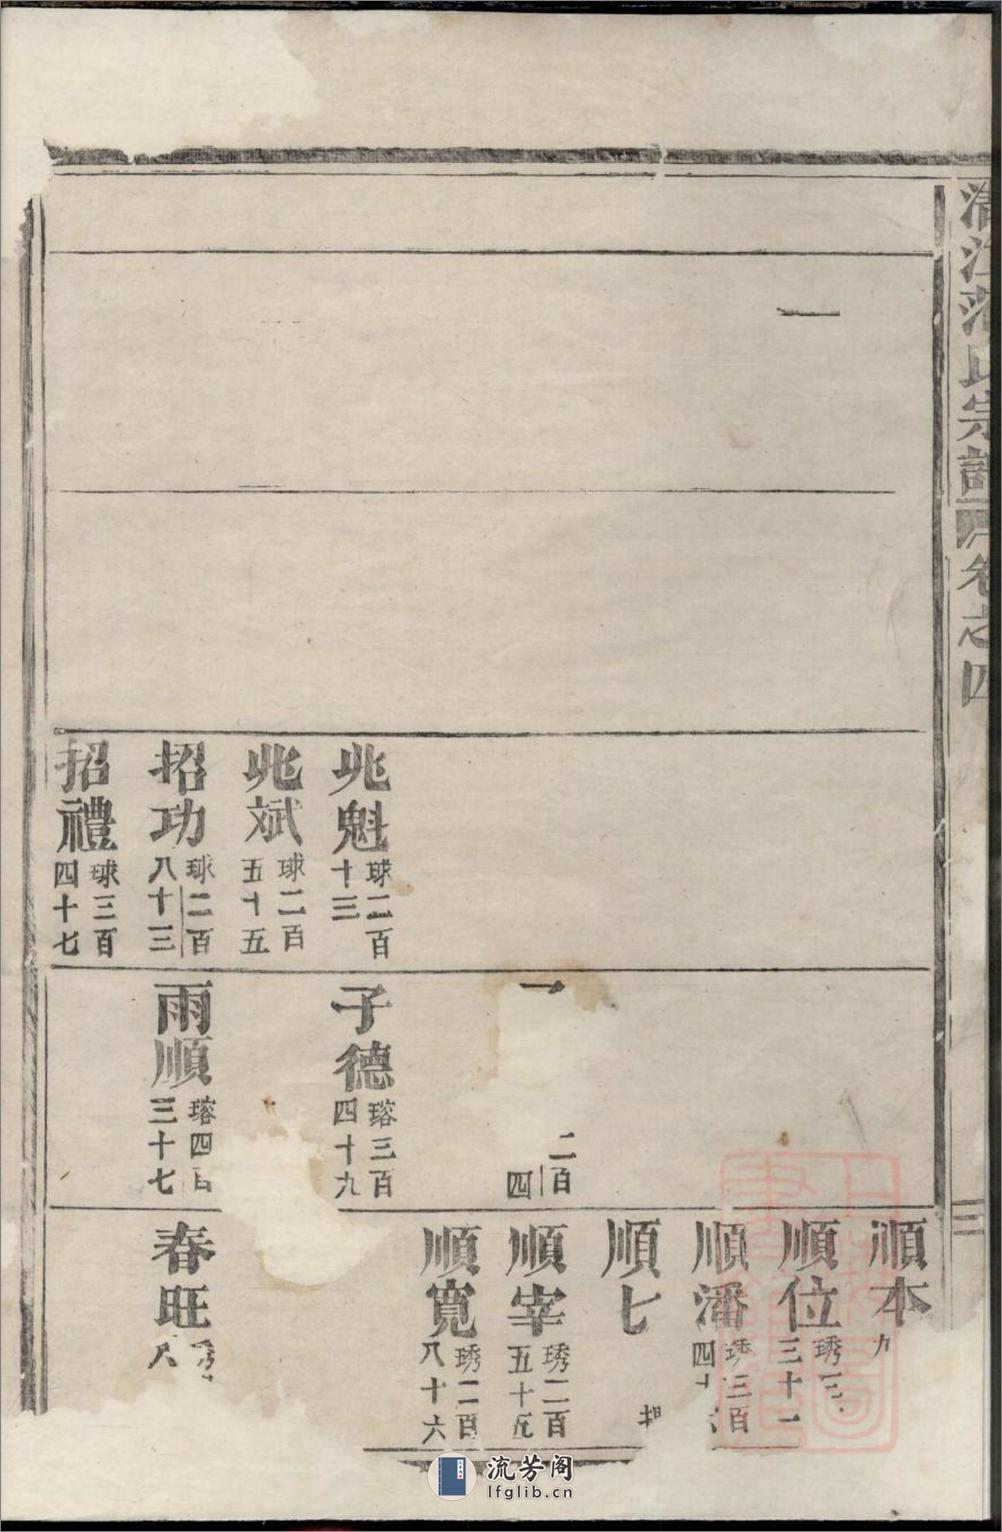 江范氏宗譜
卷之四
三
一
兆魁 球二百十三
兆斌 球二百五十五
招功 球二百八十三
招禮 球三百四十七
一
二百四
子德 瑢三百四十九
雨順 瑢四百三十七
順本 九
順位 琇三 三十一
順潘 琇三百四十六
順七
順宰 琇二百五十五
順寬 琇二百八十六
春旺 琇 八
流芳阁
lfglib.cn